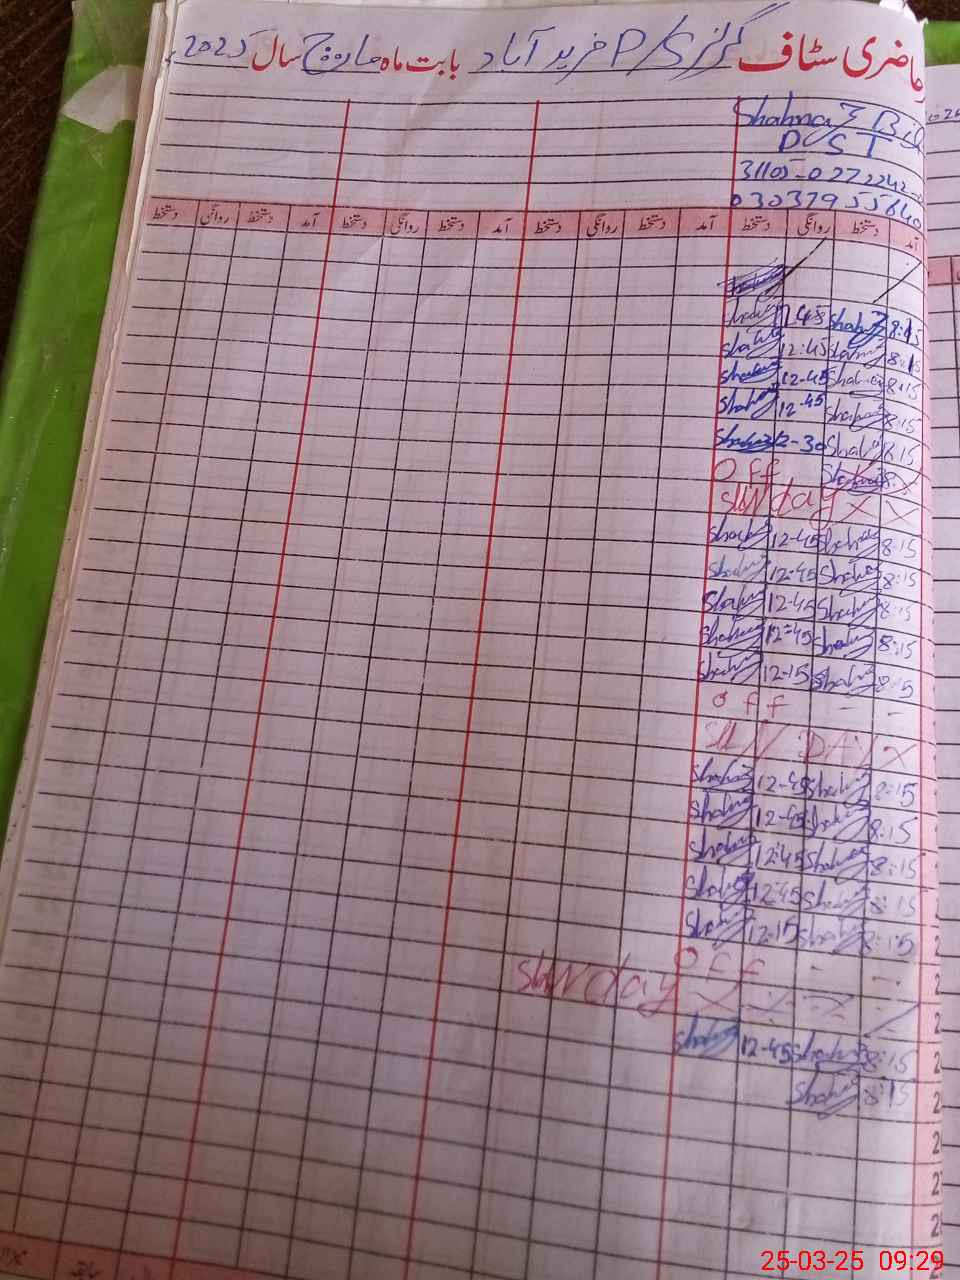 حاضری سٹاف گرلز P/S فرید آباد بابت ماہ مارچ سال 2025
Shahnaz Bibi
PST
31105-0272242-
03037955640
آمد دستخط روانگی دستخط آمد دستخط روانگی دستخط آمد دستخط روانگی دستخط آمد دستخط روانگی دستخط
8:15 Shahnaz 12.45 Shahnaz
8:15 Shahnaz 12:45 Shahnaz
8:15 Shahnaz 12-45 Shahnaz
8:15 Shahnaz 12-45 Shahnaz
8:15 Shahnaz 12-30 Shahnaz
8: Shahnaz Off
Sunday x x
8:15 Shahnaz 12-45 Shahnaz
8:15 Shahnaz 12-45 Shahnaz
8:15 Shahnaz 12-45 Shahnaz
8:15 Shahnaz 12-45 Shahnaz
8:15 Shahnaz 12-15 Shahnaz
off - -
SUNDAY x
8:15 Shahnaz 12-45 Shahnaz
8:15 Shahnaz 12-45 Shahnaz
8:15 Shahnaz 12:45 Shahnaz
8:15 Shahnaz 12-45 Shahnaz
8:15 Shahnaz 12-15 Shahnaz
Off - -
Sunday
8:15 Shahnaz 12-45 Shahnaz
8:15 Shahnaz
25-03-25 09:29